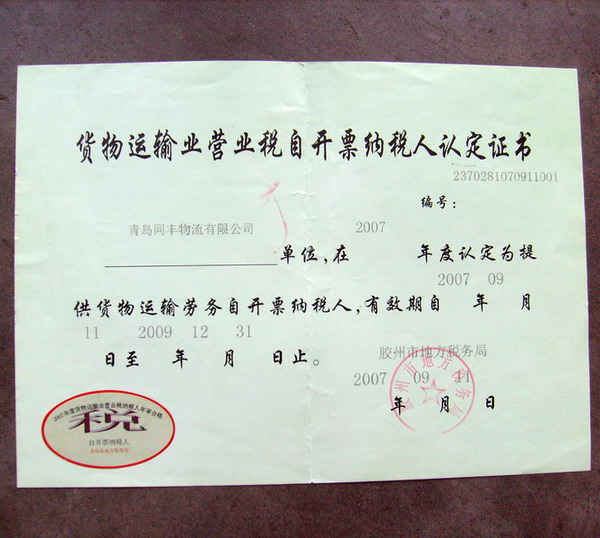 货物运输业营业税自开票纳税人认定证书
2370281070911001
编号：
青岛同丰物流有限公司 2007
单位，在 年度认定为提
2007 09
供货物运输劳务自开票纳税人，有效期自 年 月
11 2009 12 31
日至 年 月 日止。
胶州市地方税务局
2007 09 11
年 月 日
胶州市地方税务局
2007年度货物运输业营业税纳税人年审合格
税
自开票纳税人